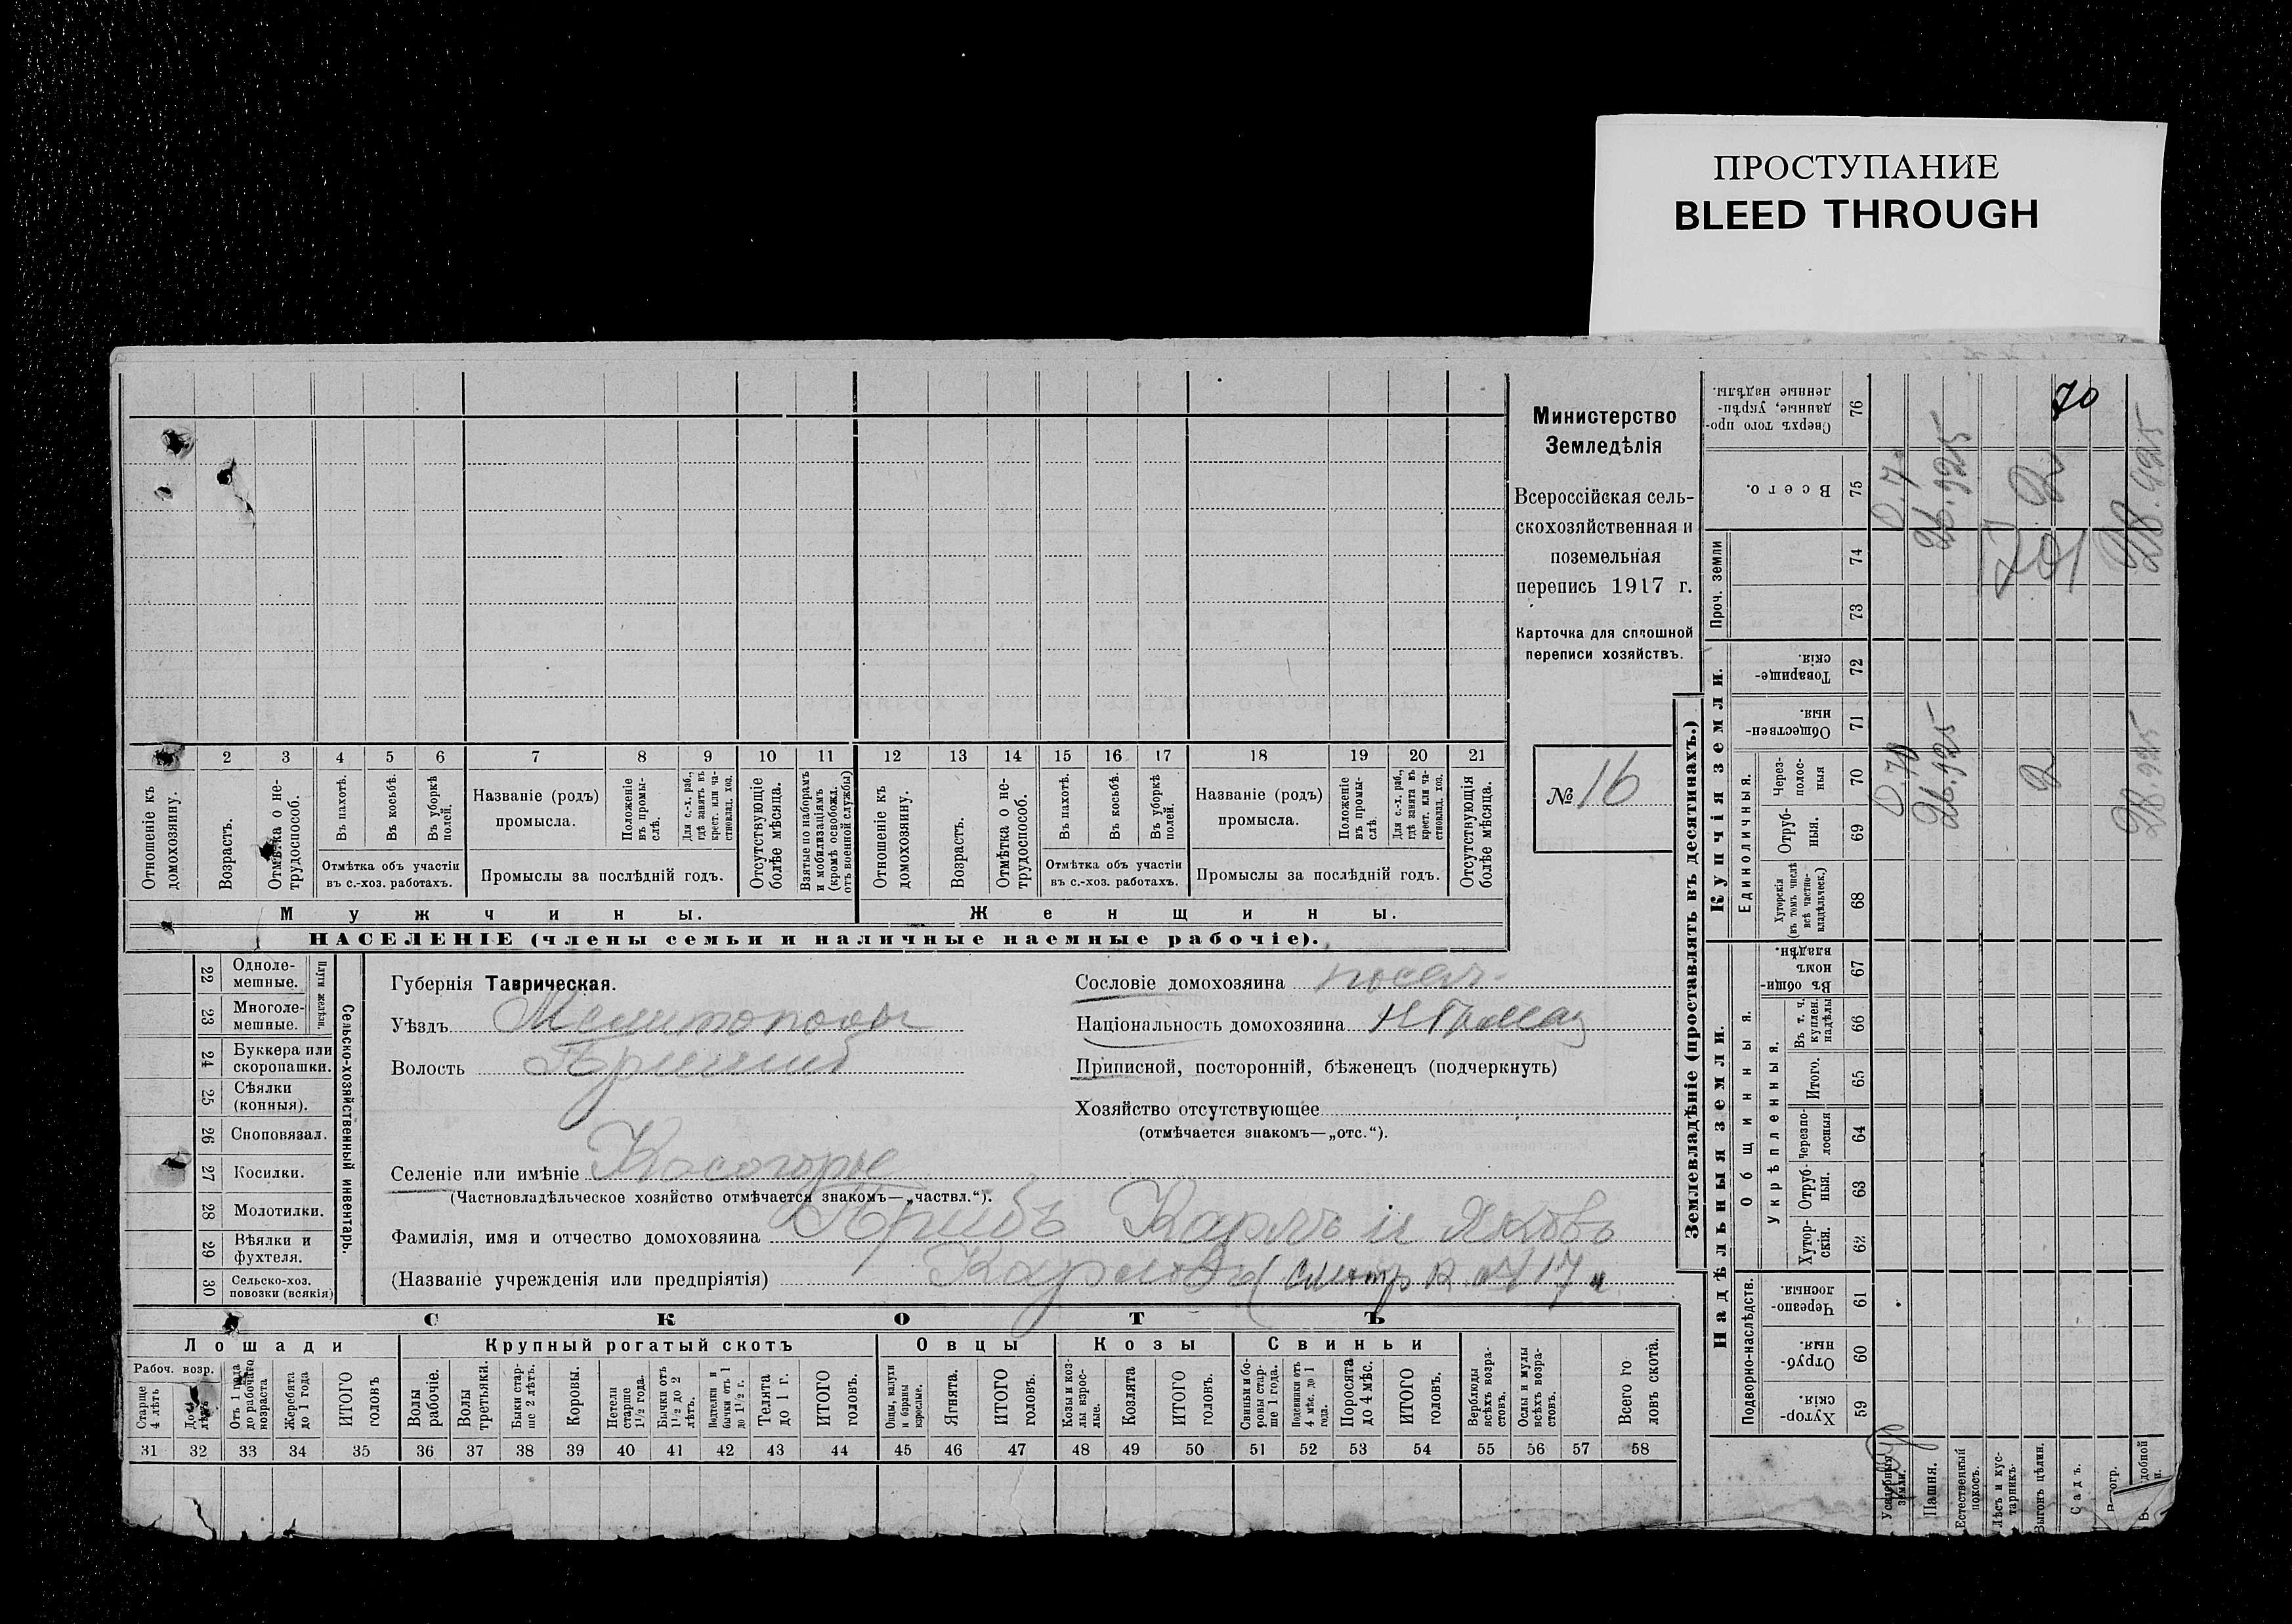 ПРОСТУПАНИЕ
BLEED THROUGH
Министерство
Земледѣлія
Всероссійская сель-
скохозяйственная и
поземельная
перепись 1917 г.
Карточка для сплошной
переписи хозяйствъ.
№ 16
1 2 3 4 5 6 7 8 9 10 11 12 13 14 15 16 17 18 19 20 21
Отношеніе къ домохозяину.
Возрастъ.
Отмѣтка о не-трудоспособ.
Въ пахотѣ.
Въ косьбѣ.
Въ уборкѣ полей.
Отмѣтка объ участіи
въ с.-хоз. работахъ.
Названіе (родъ)
промысла.
Положеніе въ промы-слѣ.
Для с.-х. раб., гдѣ занятъ въ крест. или ча-ствовлад. хоз.
Промыслы за послѣдній годъ.
Отсутствующіе болѣе мѣсяца.
Взятые по наборамъ и мобилизаціямъ (кромѣ освобожд. отъ военной службы)
Отношеніе къ домохозяину.
Возрастъ.
Отмѣтка о не-трудоспособ.
Въ пахотѣ.
Въ косьбѣ.
Въ уборкѣ полей.
Отмѣтка объ участіи
въ с.-хоз. работахъ.
Названіе (родъ)
промысла.
Положеніе въ промы-слѣ
Для с.-х. раб., гдѣ занята въ крест. или ча-ствовлад. хоз.
Промыслы за послѣдній годъ.
Отсутствующія болѣе мѣсяца.
Мужчины.
Женщины.
НАСЕЛЕНІЕ (члены семьи и наличные наемные рабочіе).
22 Одноле-мешные.
23 Многоле-мешные.
Плуги желѣзн.
24 Буккера или скоропашки.
25 Сѣялки (конныя).
26 Сноповязал.
27 Косилки.
28 Молотилки.
29 Вѣялки и фухтеля.
30 Сельско-хоз. повозки (всякія)
Сельско-хозяйственный инвентарь.
Губернія Таврическая.
Уѣздъ
Волость
Селеніе или имѣніе Косогорье
(Частновладѣльческое хозяйство отмѣчается знакомъ—„частвл.“).
Фамилія, имя и отчество домохозяина Карлъ и Яковъ
(Названіе учрежденія или предпріятія)
Сословіе домохозяина посел.
Національность домохозяина
Приписной, посторонній, бѣженецъ (подчеркнуть)
Хозяйство отсутствующее
(отмѣчается знакомъ—„отс.“).
СКОТЪ
Лошади
Крупный рогатый скотъ
Овцы
Козы
Свиньи
Рабоч. возр.
Старше 4 лѣтъ
До 4 лѣтъ
Отъ 1 года до рабочаго возраста
Жеребята до 1 года
ИТОГО головъ
Волы рабочіе.
Волы третьяки.
Быки стар-ше 2 лѣтъ.
Коровы.
Нетели старше 1½ года.
Бычки отъ 1½ до 2 лѣтъ.
Подтелки и бычки отъ 1 до 1½ г.
Телята до 1 г.
ИТОГО головъ.
Овцы, валухи и бараны взрослые.
Ягнята.
ИТОГО головъ.
Козы и коз-лы взрос-лые.
Козлята
ИТОГО головъ.
Свиньи и бо-ровы стар-ше 1 года.
Подсвинки отъ 4 мѣс. до 1 года.
Поросята до 4 мѣс.
ИТОГО головъ.
Верблюды всѣхъ возра-стовъ.
Ослы и мулы всѣхъ возра-стовъ.
Всего го-ловъ скота.
31 32 33 34 35 36 37 38 39 40 41 42 43 44 45 46 47 48 49 50 51 52 53 54 55 56 57 58
Землевладѣніе (проставлять въ десятинахъ.)
Купчія земли.
Надѣльныя земли.
Проч. земли
Единоличныя.
Общинныя.
Укрѣпленныя.
Подворно-наслѣдств.
Сверхъ того про-данные, укрѣп-ленные надѣлы. 76
Всего. 75
74
73
Товарище-скія. 72
Обществен-ныя. 71
Через-полос-ныя 70
Отруб-ныя. 69
Хуторскія (въ томъ числѣ всѣ частно-владѣльческ.) 68
Въ общи-номъ владѣн. 67
Въ т. ч. куплен. надѣлы 66
Итого. 65
Черезпо-лосныя 64
Отруб-ныя. 63
Хутор-скія. 62
Черезпо-лосныя. 61
Отруб-ныя. 60
Хутор-скія. 59
Усадебныя земли.
Пашня.
Естественный покосъ.
Лѣсъ и кус-тарникъ.
Выгонъ цѣлин.
Садъ.
70
0.70
26.925
2
28.925
26.925
2